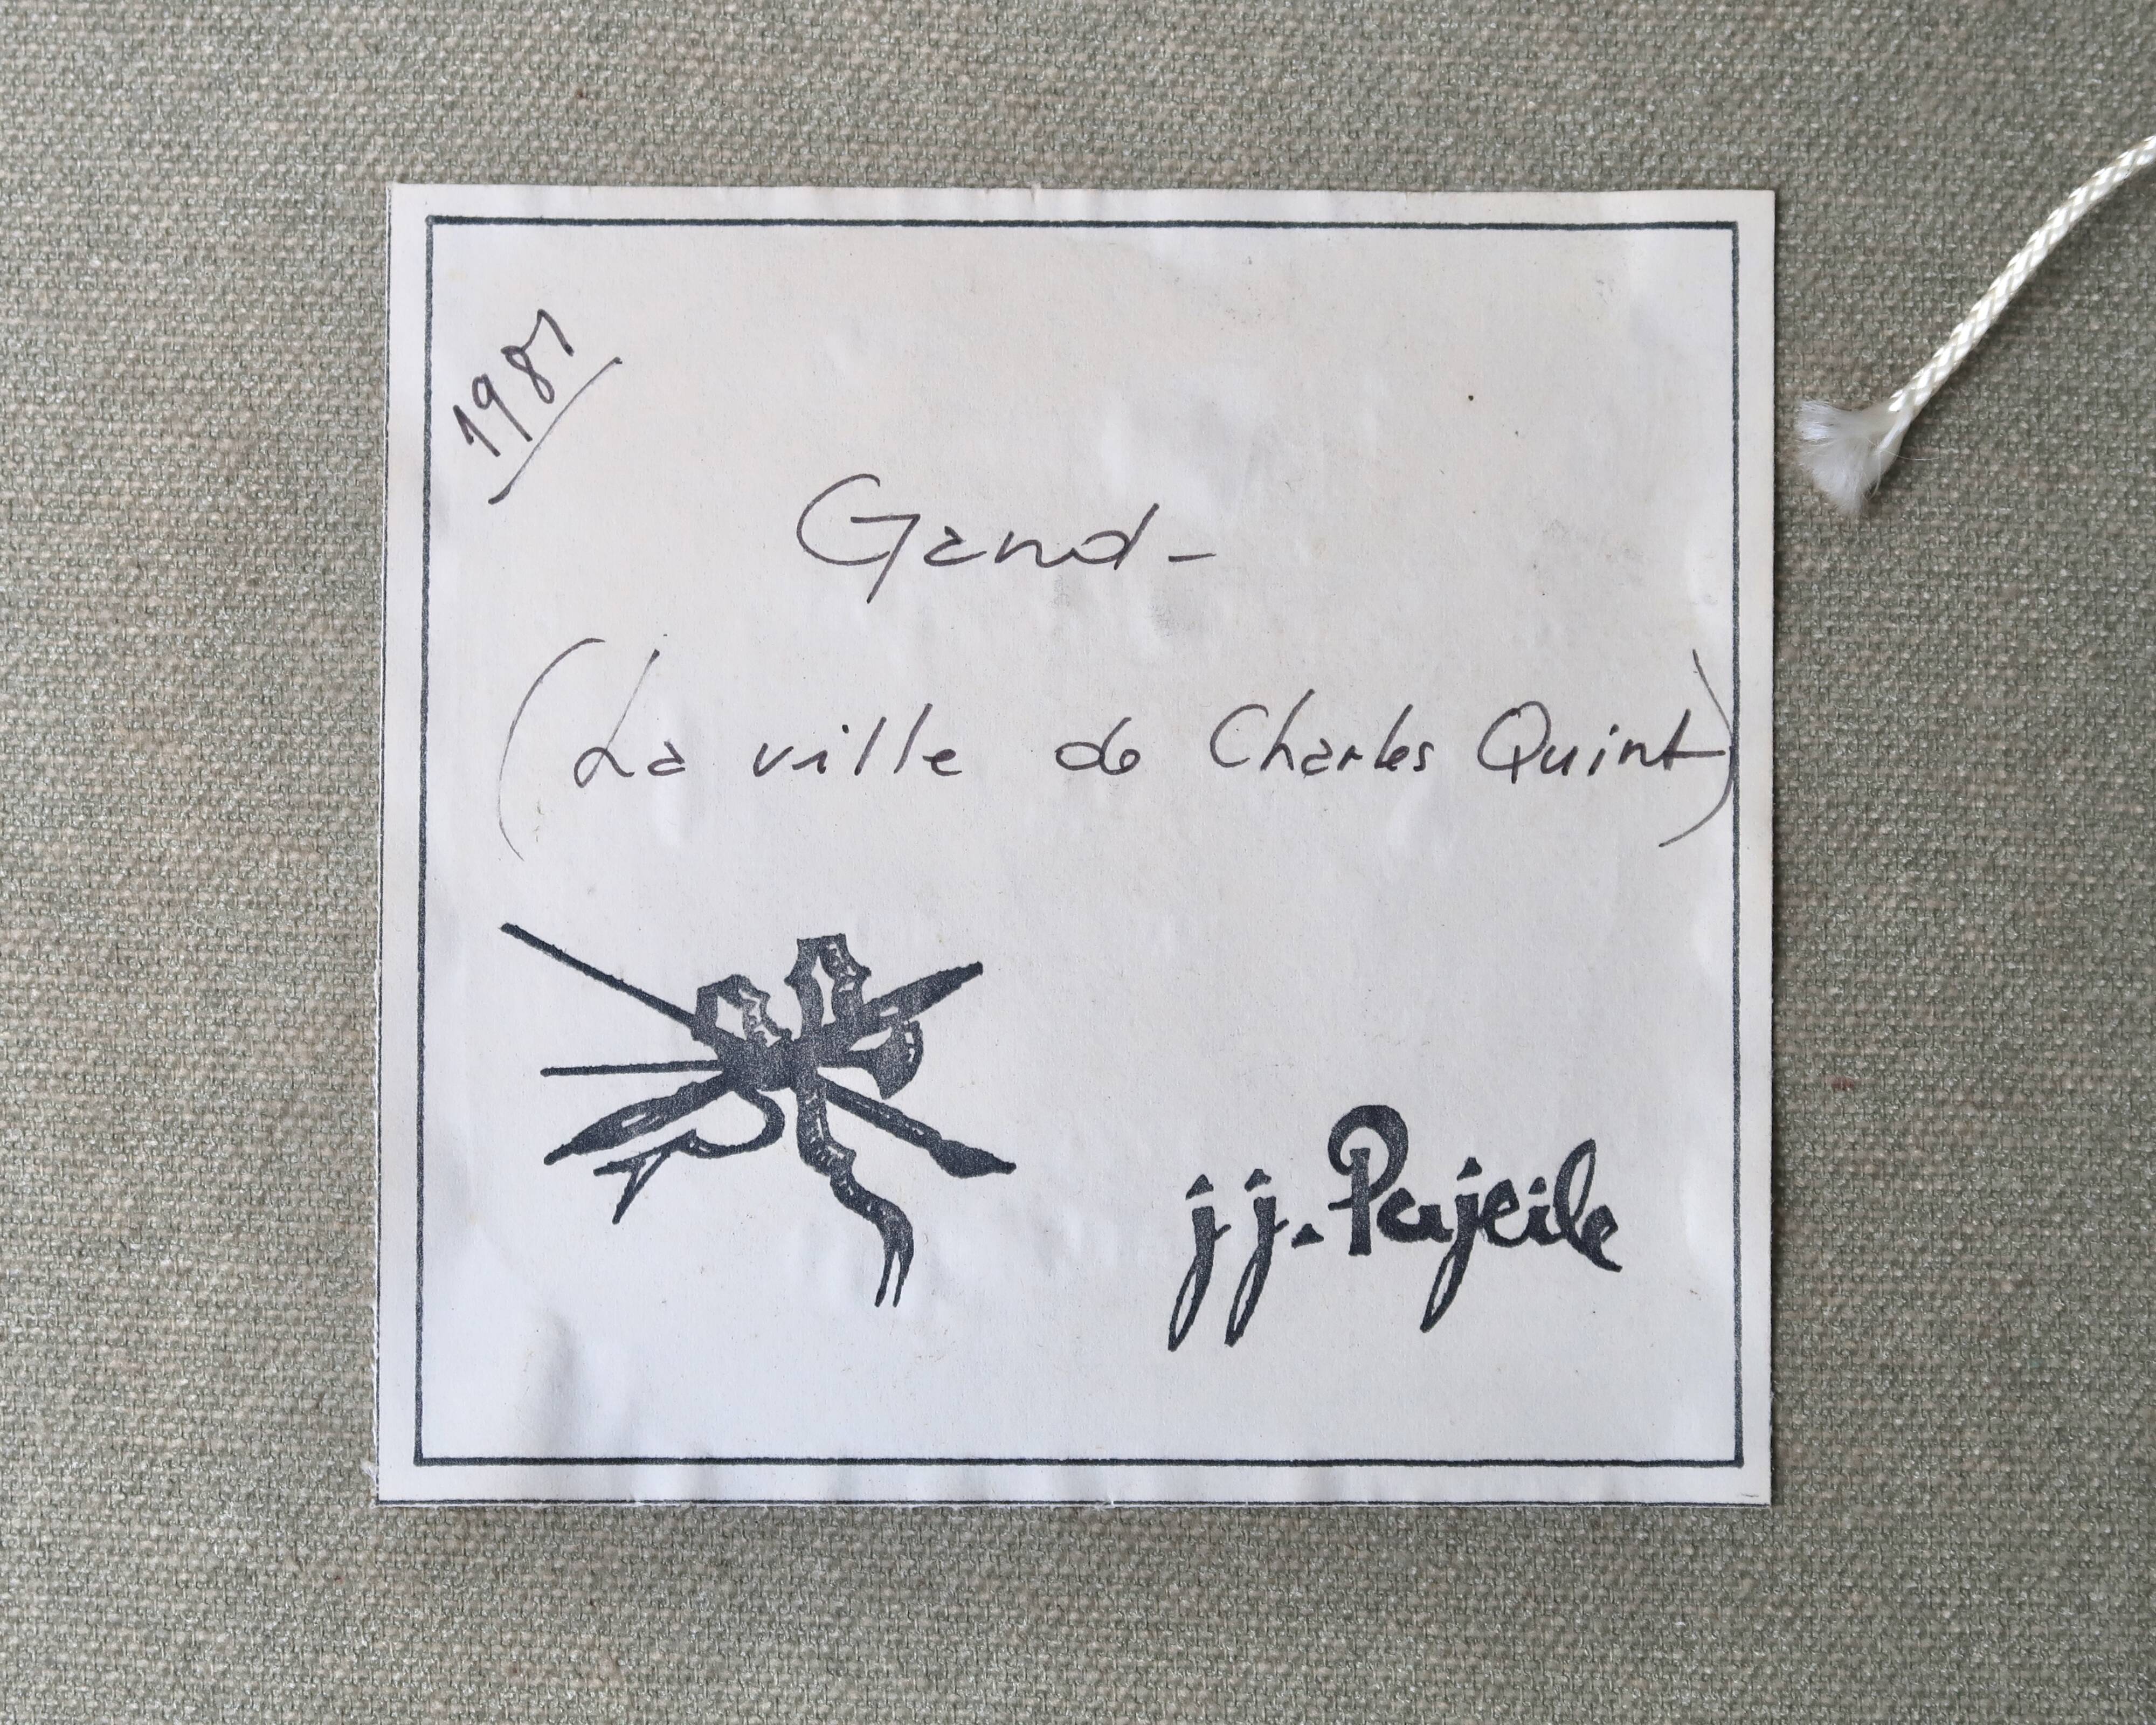 1987
Gand-
(La ville de Charles Quint)
jj. Pajeile